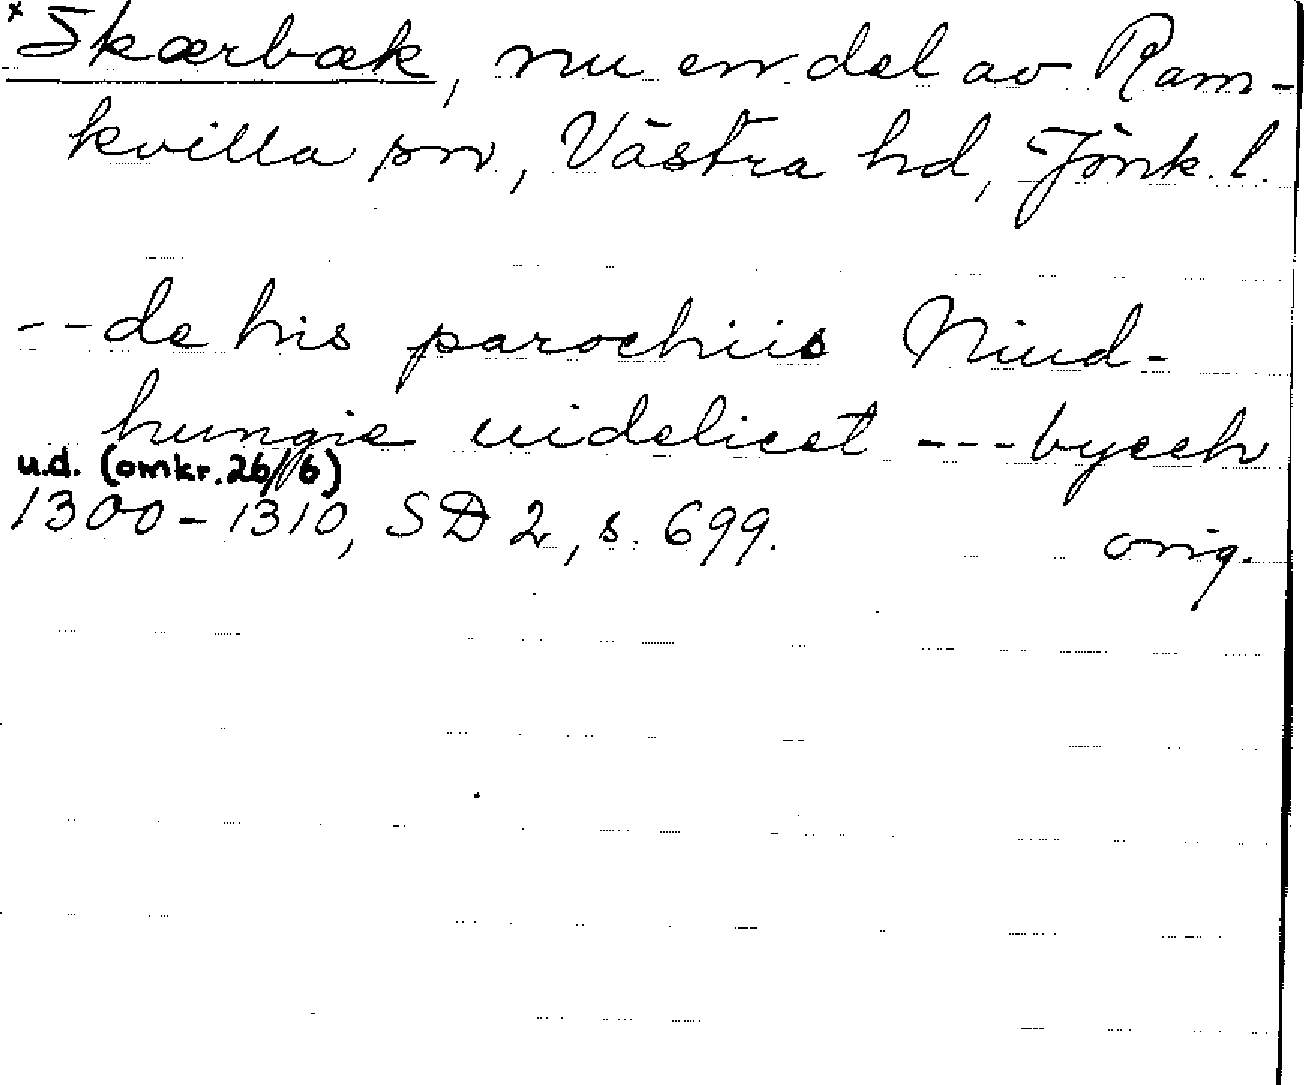 ×Skærbæk, nu en del av Ram-
kvilla sn, Västra hd, Jönk. l.
--de his parochiis Niud-
hungie uidelicet ---bycch
u.d. (omkr. 26/6)
1300-1310, SD 2, s. 699. orig.